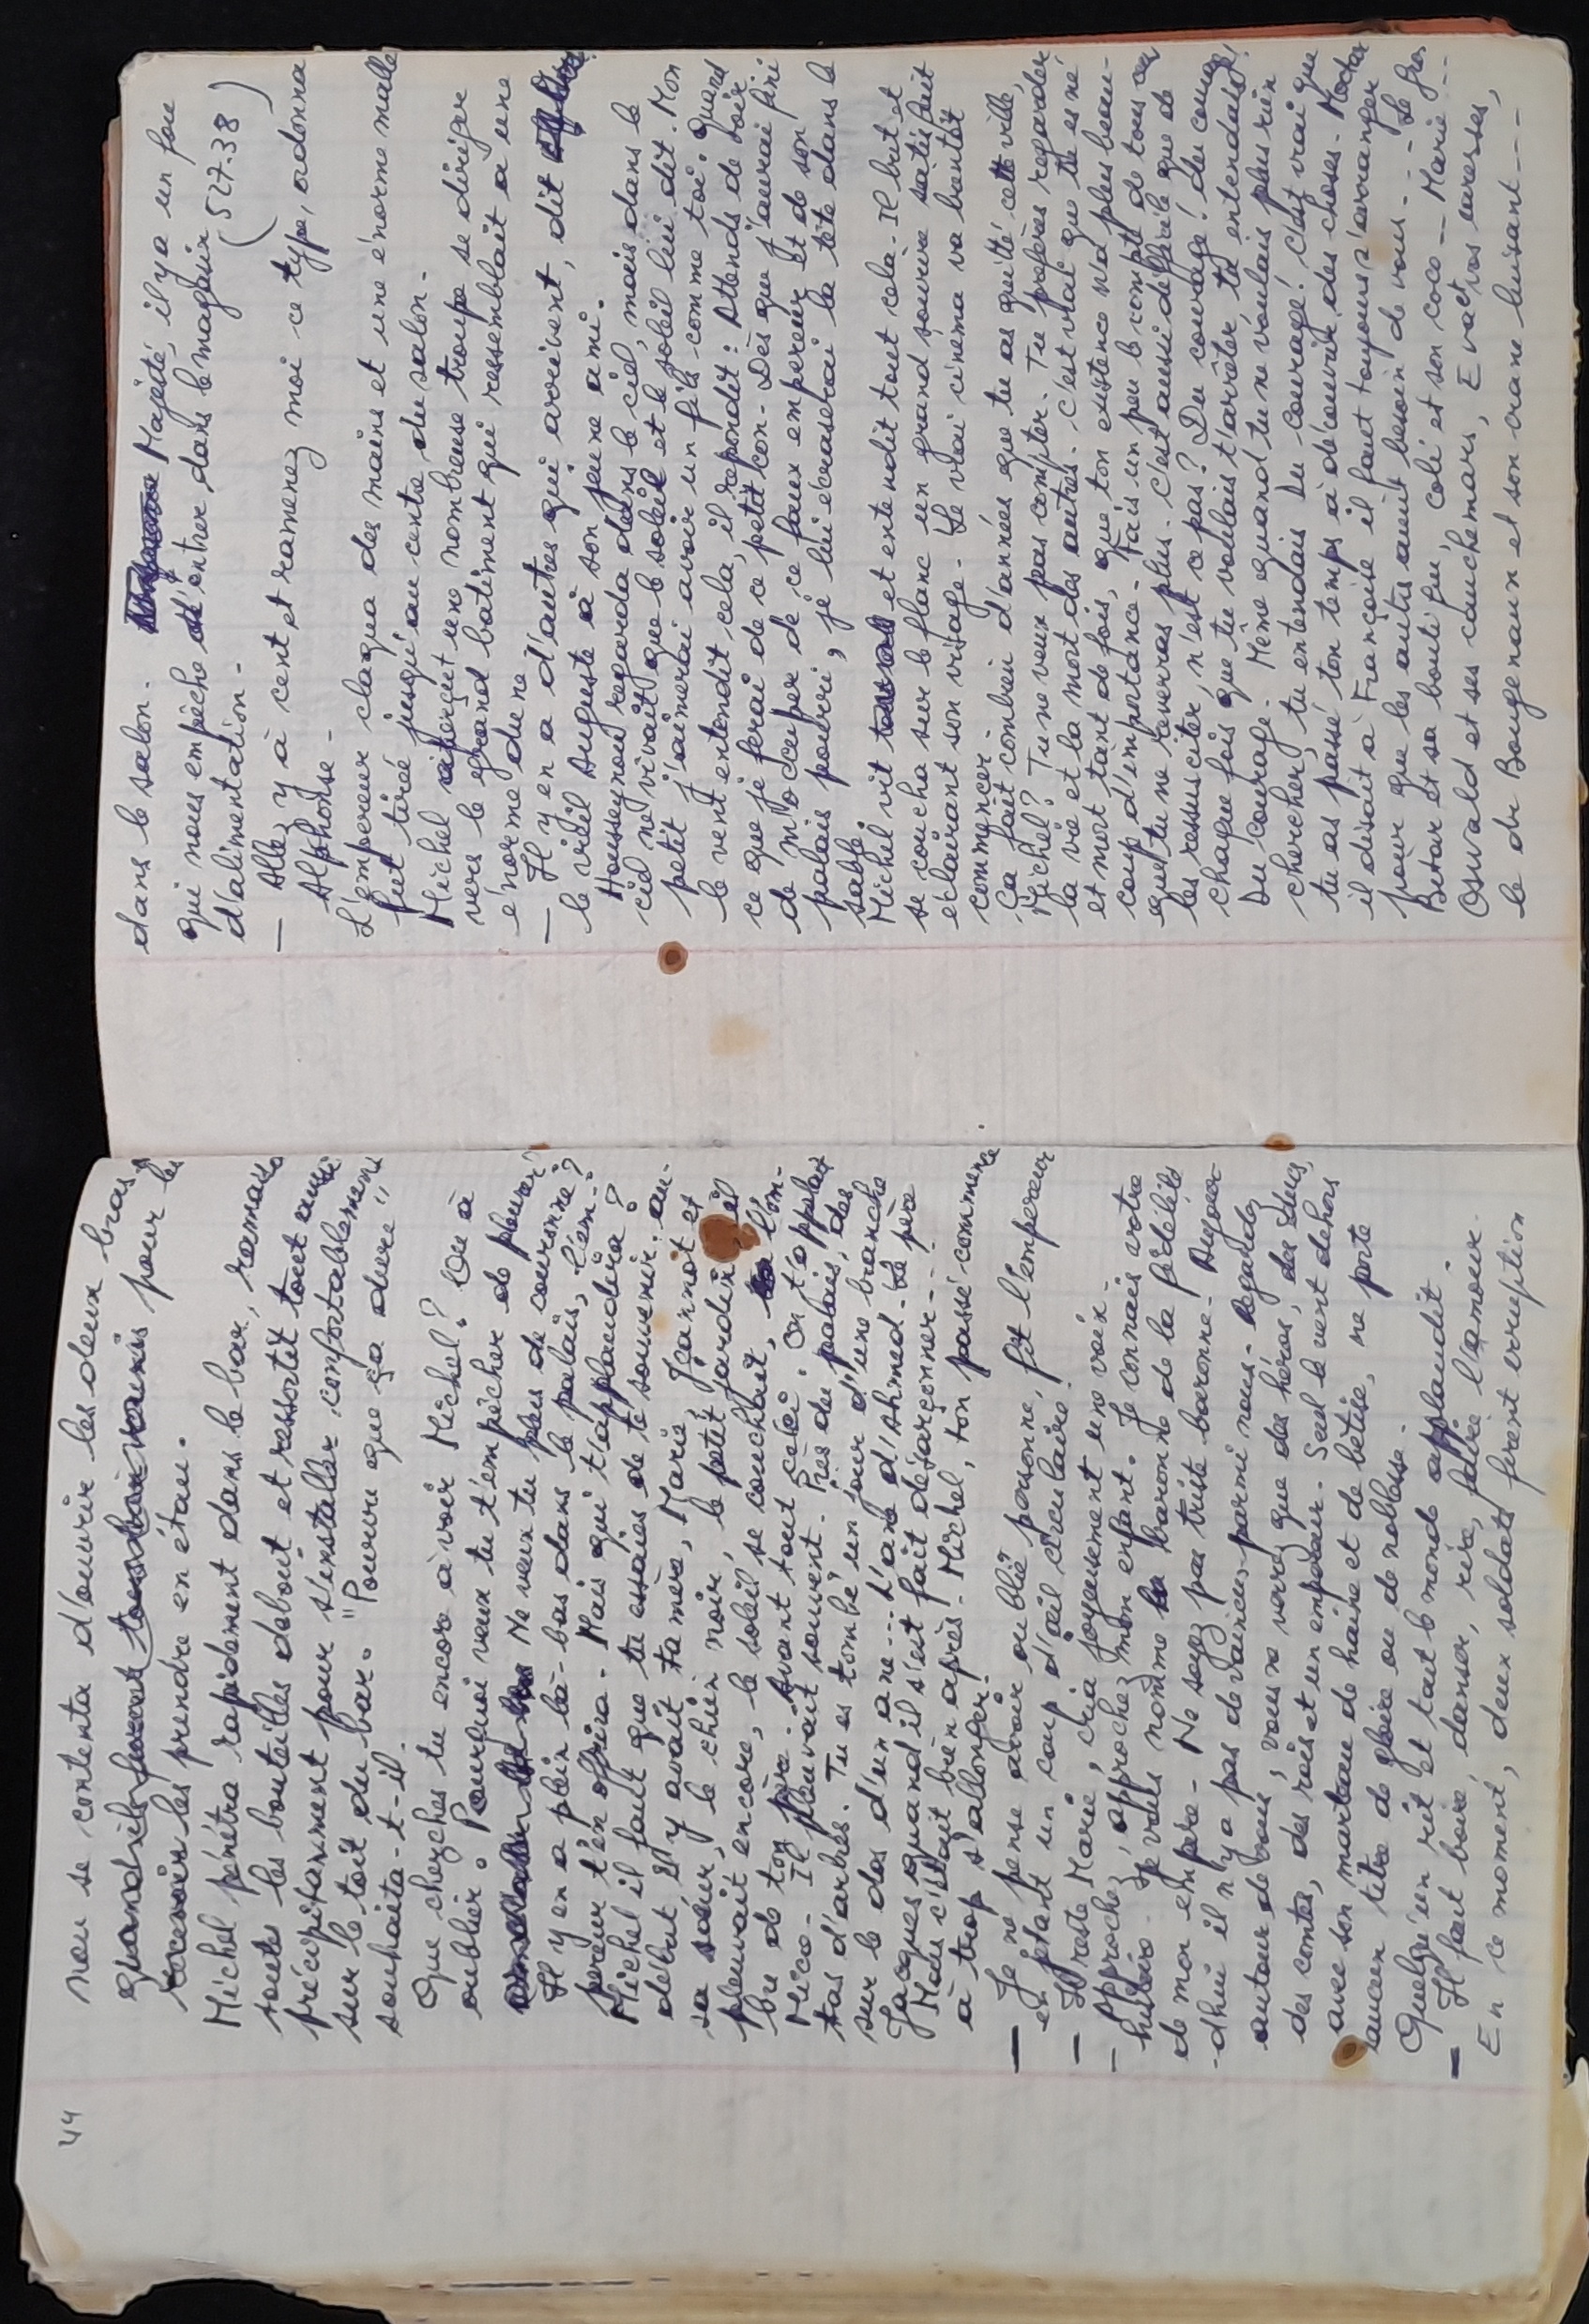 44
nou se contenta d'ouvrir les deux bras
quand ils furent tous deux réunis pour les
recevoir les prendre en étau.
Michel pénétra rapidement dans le bar, ramassa
toutes les bouteilles debout et ressortit tout aussi
précipitamment pour s'installer confortablement
sur le toit du bar. "Pourvu que ça dure"
souhaita-t-il.
Que cherches tu encore à voir Michel? Ou à
oublier? Pourquoi veux tu t'empêcher de pleurer?
Ne veux tu plus de couronne?
Il y en a plein là-bas dans le palais, l'em-
pereur t'en offrira. Mais qui t'applaudira?
Michel il faut que tu essaies de te souvenir. au-
début, il y avait ta mère, Marie, Jeannot et
sa soeur, le chien noir, le petit jardin et il
pleuvait encore, le soleil se couchait, l'om-
bre de ton père. Avant tout celà. On t'appelait
Mico. Il pleuvait souvent. Près du palais, des
tas d'arbres. Tu es tombé un jour d'une branche
sur le dos d'un ane... L'ane d'Ahmed. Le père
Jacques quand il s'est fait désarçonner...
Mais c'était bien après. Michel, ton passé commence
à trop s'allonger.
— Je ne pense avoir oublié personne, fit l'empereur
en jetant un coup d'œil circulaire.
— Il reste Marie, cria joyeusement une voix.
— Approchez, approchez mon enfant. Je connais votre
histoire. Je vous nomme la baronne de la fidélité
de mon empire. Ne soyez pas triste baronne. Aujour
-dhui il n'y a pas de vaincus parmi nous. Regardez
autour de vous, vous ne verrez que des héros, des ducs,
des comtes, des rois et un empereur. Seul le vent dehors
avec son manteau de haine et de bêtise, ne porte
aucun titre de gloire ou de noblesse.
Quelqu'un rit et tout le monde applaudit.
— Il faut boire, danser, rire, faire l'amour.
En ce moment, deux soldats firent irruption
dans le salon. Majesté, il y a un fou
qui nous empêche d'entrer dans le magasin
d'alimentation. (527.38)
— Allez y à cent et ramenez moi ce type, ordonna
Alphonse.
L'empereur claqua des mains et une énorme malle
fut tirée jusqu'au centre du salon.
Michel aperçut une nombreuse troupe se diriger
vers le grand batiment qui ressemblait à une
énorme dune
— Il y en a d'autres qui arrivent, dit
le vieil Auguste à son jeune ami.
Housseynou regarda dans le ciel, mais dans le
ciel ne vivait que le soleil et le soleil lui dit. Mon
petit j'aimerai avoir un fils comme toi. Quand
le vent entendit cela, il repondit: Attends de voir
ce que je ferai de ce petit con. Dès que j'aurai fini
de m'occuper de ce faux empereur et de son
palais pourri, je lui écraserai la tête dans le
sable.
Michel vit et entendit tout celà. Il but et
se coucha sur le flanc un grand sourire satisfait
éclairant son visage. Le vrai cinéma va bientôt
commencer.
Ça fait combien d'années que tu as quitté cette ville,
Michel? Tu ne veux pas compter. Tu préfères regarder
la vie et la mort des autres. C'est vrai que tu es né
et mort tant de fois, que ton existence n'a plus beau-
coup d'importance. Fais un peu le compte de tous ceux
que tu ne reverras plus. C'est aussi difficile que de
les ressusciter, n'est ce pas? Du courage! du courage!
chaque fois que tu voulais t'arrêter, tu entendais!
Du courage. Même quand tu ne voulais plus rien
chercher, tu entendais Du courage! C'est vrai que
tu as passé ton temps à découvrir des choses. Moctar
il disait à Françoise il faut toujours s'arranger
pour que les autres aient besoin de vous... Le gros
Betar et sa bouti que, Coli et son coco — Marie...
Oswald et ses cauchemars, Eva et vos caresses,
le dr Bougenoux et son crane luisant...